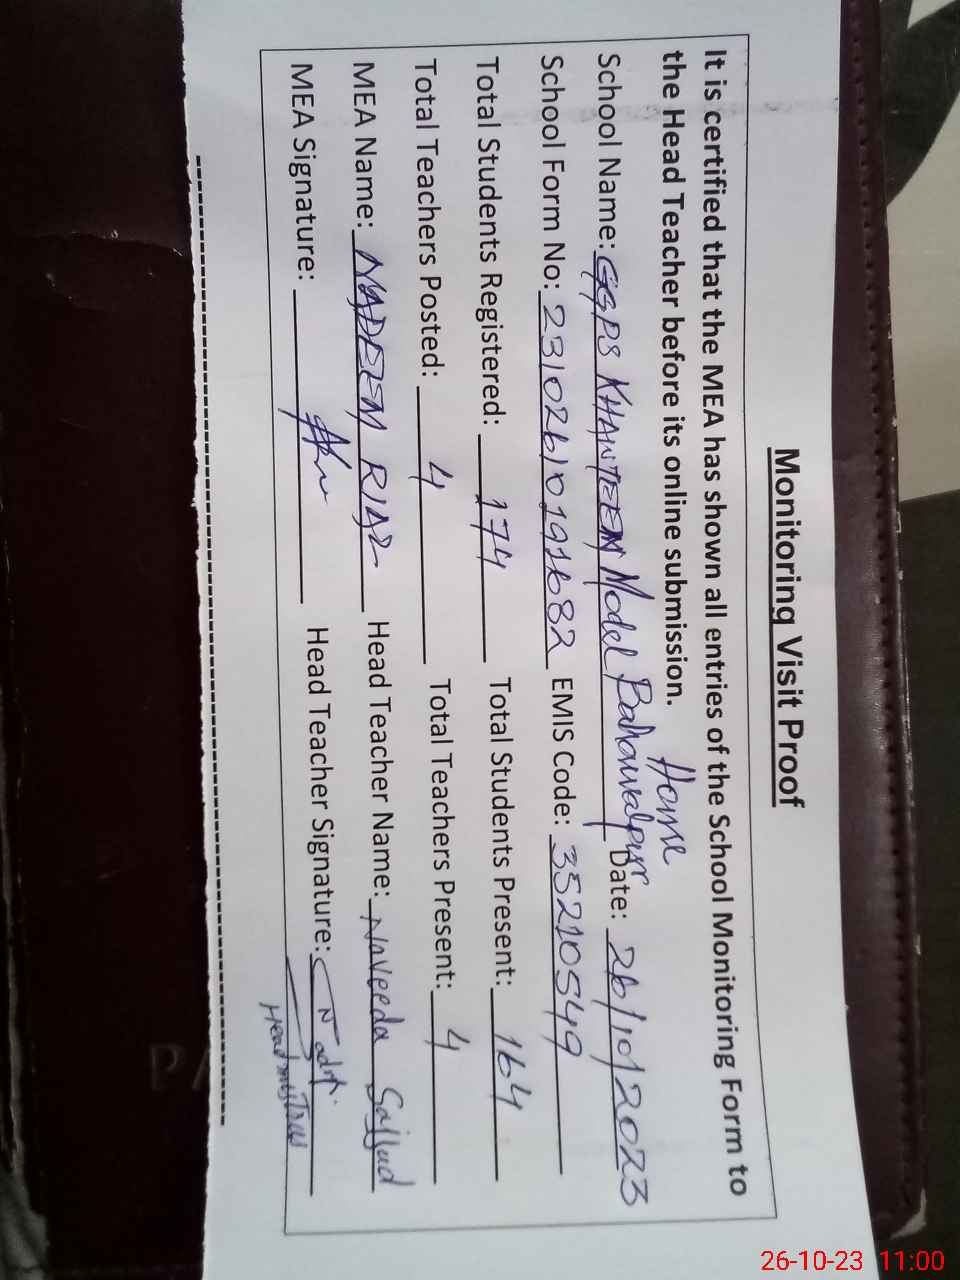 Monitoring Visit Proof
It is certified that the MEA has shown all entries of the School Monitoring Form to
the Head Teacher before its online submission.
House
School Name: GGPS KHANTEEM Model Bahawalpur Date: 26/10/2023
School Form No: 23102610191682 EMIS Code: 35210549
Total Students Registered: 174 Total Students Present: 164
Total Teachers Posted: 4 Total Teachers Present: 4
MEA Name: NADEEM RIAZ Head Teacher Name: Naveeda Sajjad
MEA Signature: Head Teacher Signature:
Headmistress
26-10-23 11:00